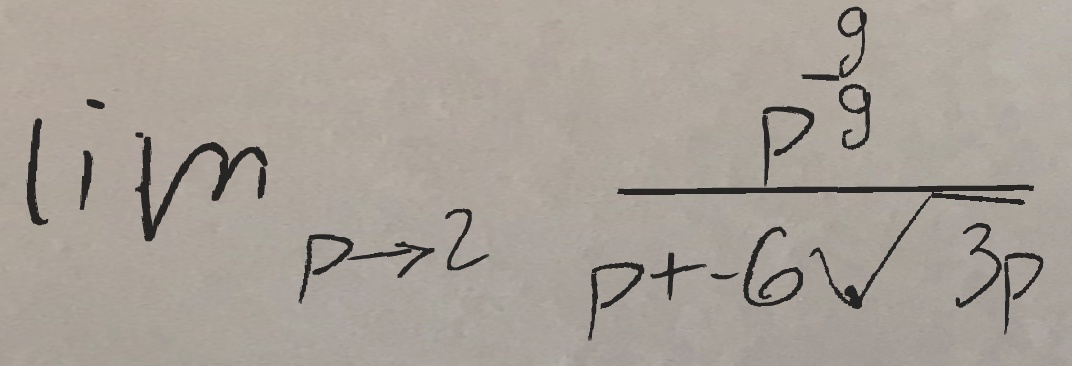 \lim_{p \to 2} \frac{p^{\frac{9}{9}}}{p + -6\sqrt{3p}}